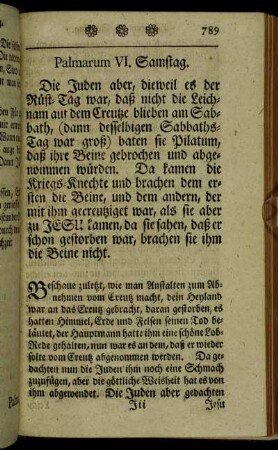 789
Palmarum VI. Samstag.
Die Juden aber, dieweil es der
Rüst-Tag war, daß nicht die Leich-
nam auf dem Creutze blieben am Sab-
bath, (dann desselbigen Sabbaths-
Tag war groß) baten sie Pilatum,
daß ihre Beine gebrochen und abge-
nommen würden. Da kamen die
Kriegs-Knechte und brachen dem er-
sten die Beine, und dem andern, der
mit ihm gecreutziget war, als sie aber
zu JESU kamen, da sie sahen, daß er
schon gestorben war, brachen sie ihm
die Beine nicht.
Beschaue zuletzt, wie man Anstalten zum Ab-
nehmen vom Creutz macht, dein Heyland
war an das Creutz gebracht, daran gestorben, es
hatten Himmel, Erde und Felsen seinen Tod be-
läutet, der Hauptmann hatte ihm eine schöne Lob-
Rede gehalten, nun war es an dem, daß er wieder
solte vom Creutz abgenommen werden. Da ge-
dachten nun die Juden ihm noch eine Schmach
zuzufügen, aber die göttliche Weisheit hat es von
ihm abgewendet. Die Juden aber gedachten
Jii Jesu